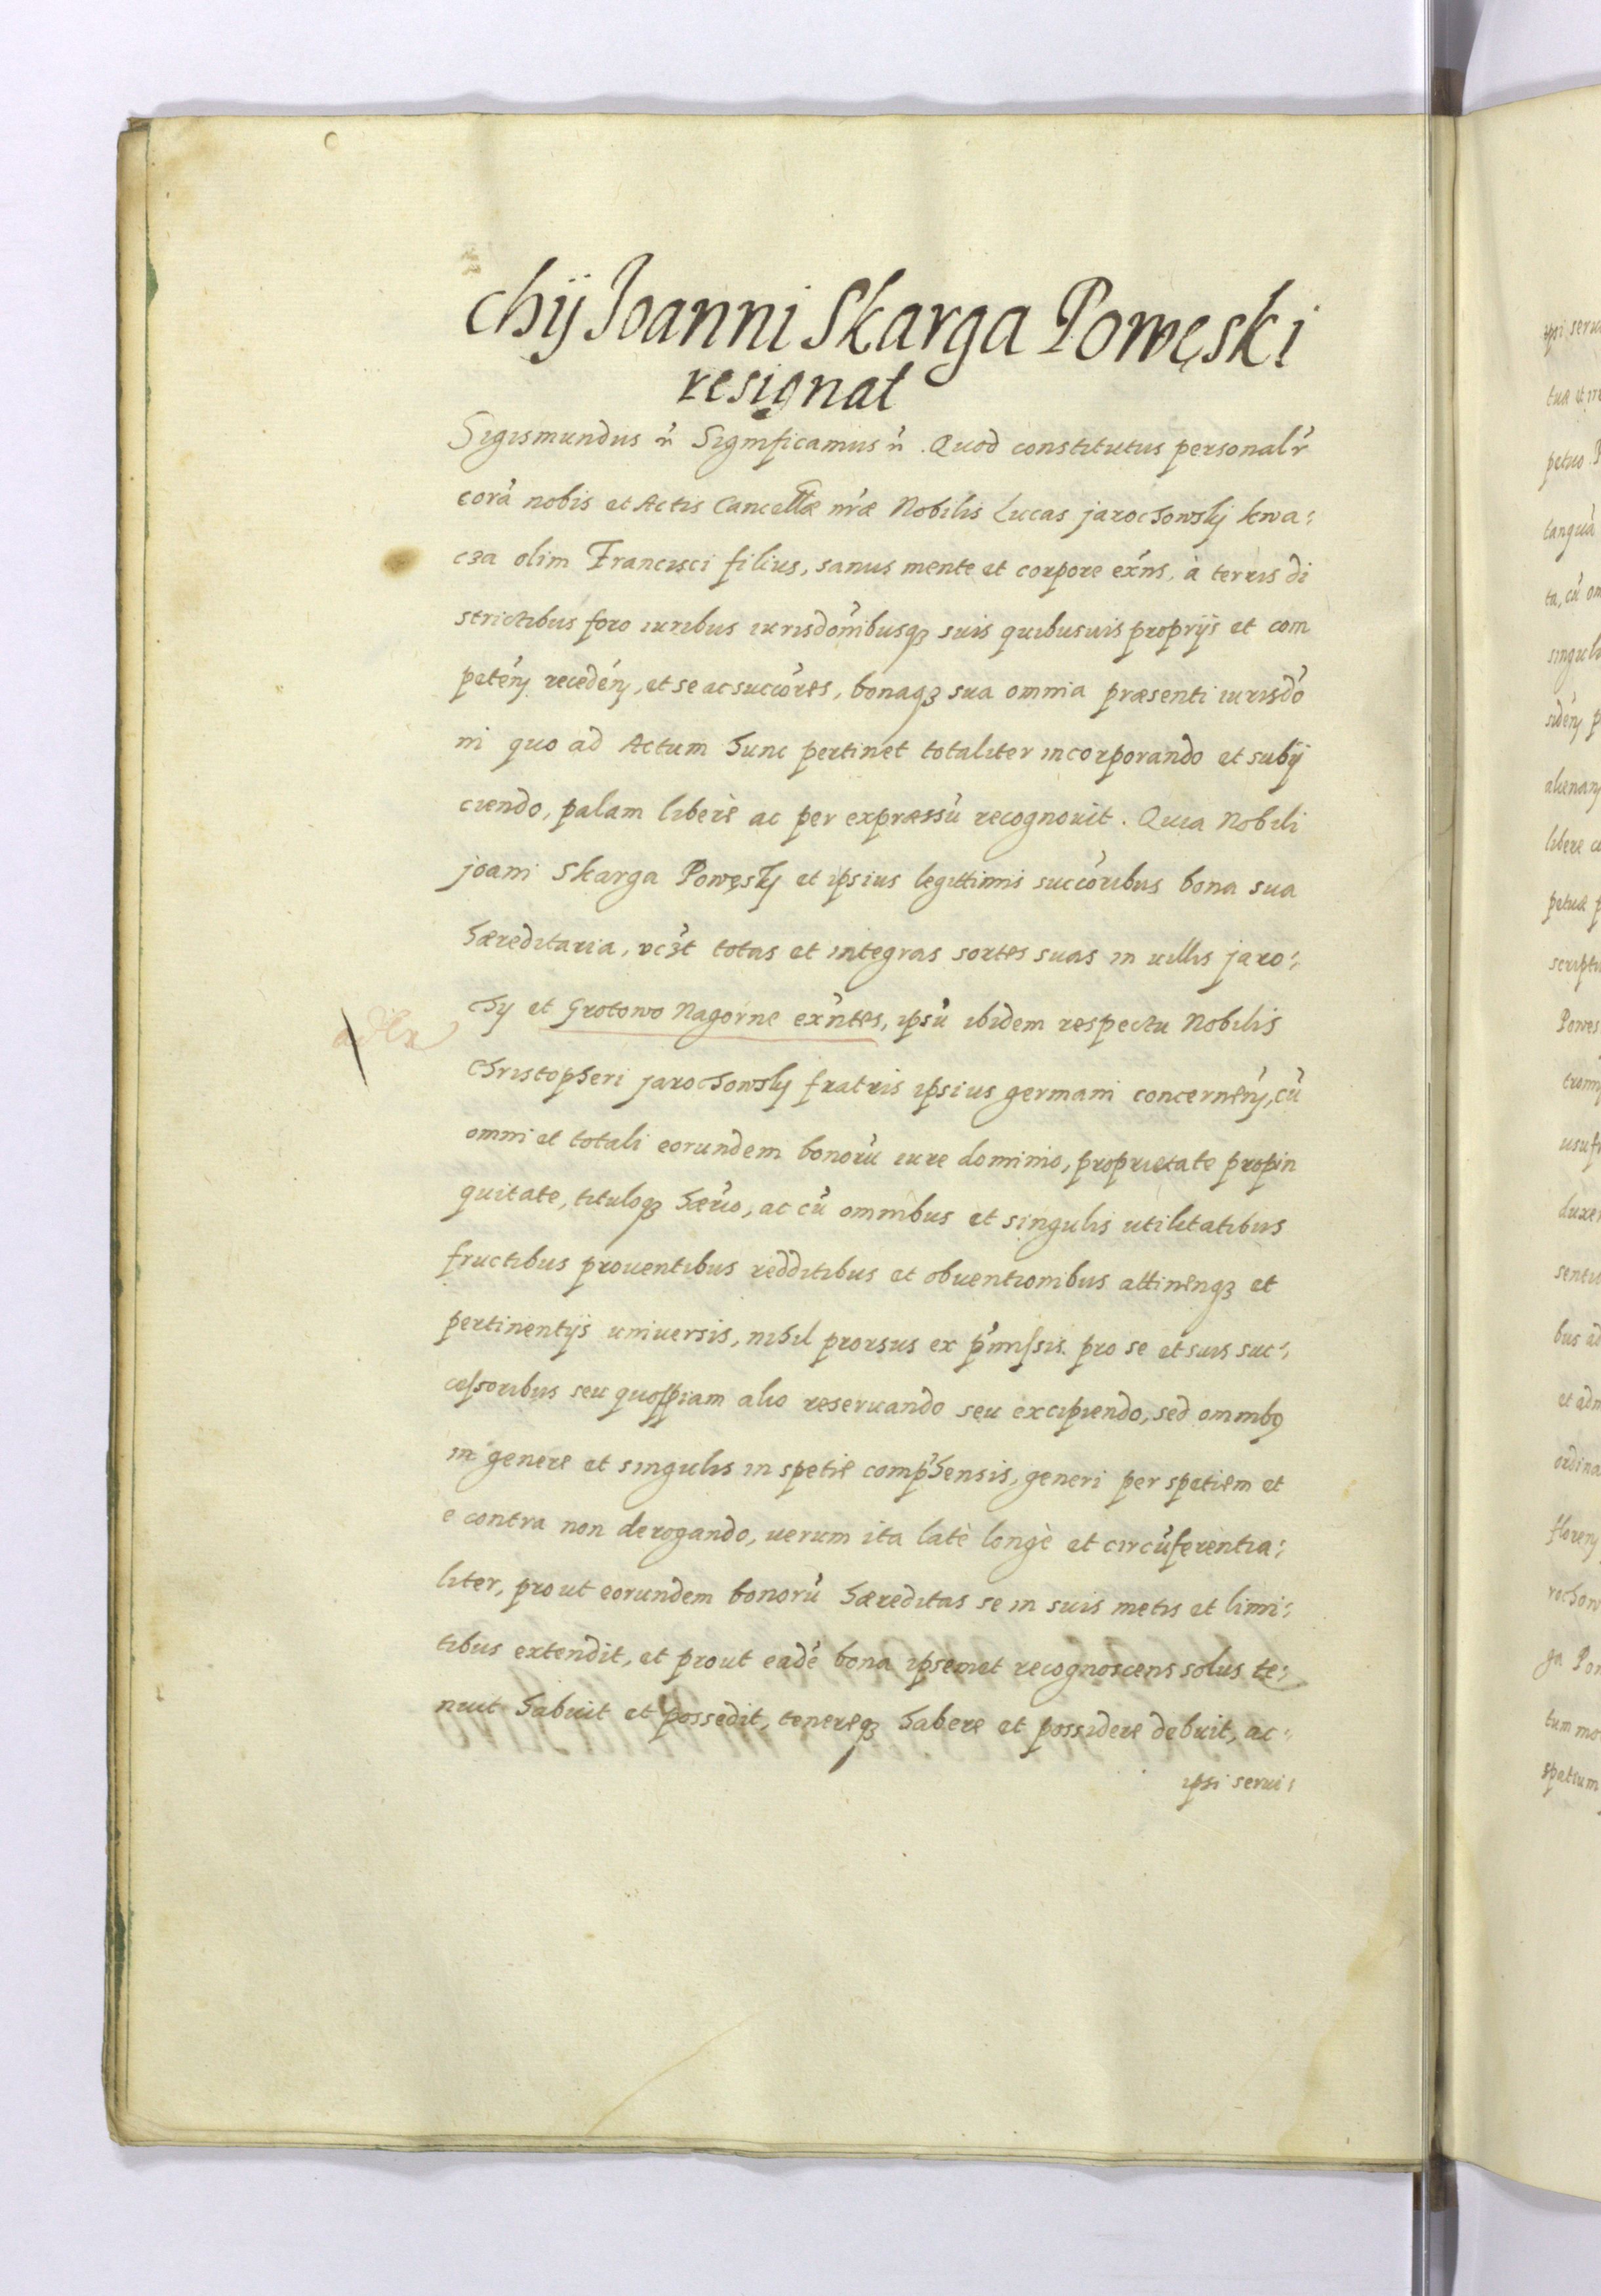 chij Joanni Skarga Powęski
resignat
Sigismundus ñ Significamus ñ. Quod constitutus personalr̃
corã nobis et Actis Cancellæ nr̃æ Nobilis Lucas jarochowskj kwa:
cza olim Francisci filius, sanus mente et corpore exñs, à terris di
strictibus foro iuribus iurisdõnibusqꝫ suis quibusuis proprijs et com
petẽn recedẽn, et se ac succõres, bonaqꝫ sua omnia præsenti iurisdõ
ni quo ad Actum hunc pertinet totaliter incorporando et subij
ciendo, palam liberè ac per expræssũ recognouit. Quia Nobili
joani Skarga Powęskj et ipsius legittimis succõribus bona sua
hæreditaria, vcꝫt totas et integras sortes suas in uillis jaro:
chy et Grotowo Nagorne exñtes, ipsũ ibidem respectu Nobilis
christopheri jarochowskj fratris ipsius germani concernẽn, cũ
omni et totali eorundem bonorũ iure dominio, proprietate propin
quitate, tituloqꝫ hærĩo, ac cũ omnibus et singulis utilitatibus
fructibus prouentibus redditibus et obuentionibus attinenqꝫ et
pertinentijs uniuersis, nihil prorsus ex p̃missis pro se et suis suc:
cessoribus seu quospiam alio reseruando seu excipiendo, sed omnibꝯ
in genere et singulis in spetie comp̃hensis, generi per spetiem et
e contra non derogando, uerum ita latè longè et circũferentia:
liter, prout eorundem bonorũ hæreditas se in suis metis et limi:
tibus extendit, et prout eadẽ bona ipsemet recognoscens solus te:
nuit habuit et possedit, tenereqꝫ habere et possidere debuit, ac:
ipsi serui: